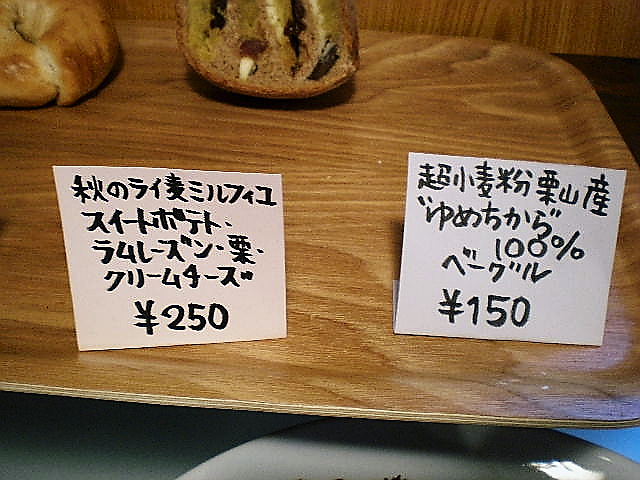 秋のライ麦ミルフィユ
スイートポテト・
ラムレーズン・栗・
クリームチーズ
¥250
超小麦粉栗山産
“ゆめちから”
100%
ベーグル
¥150